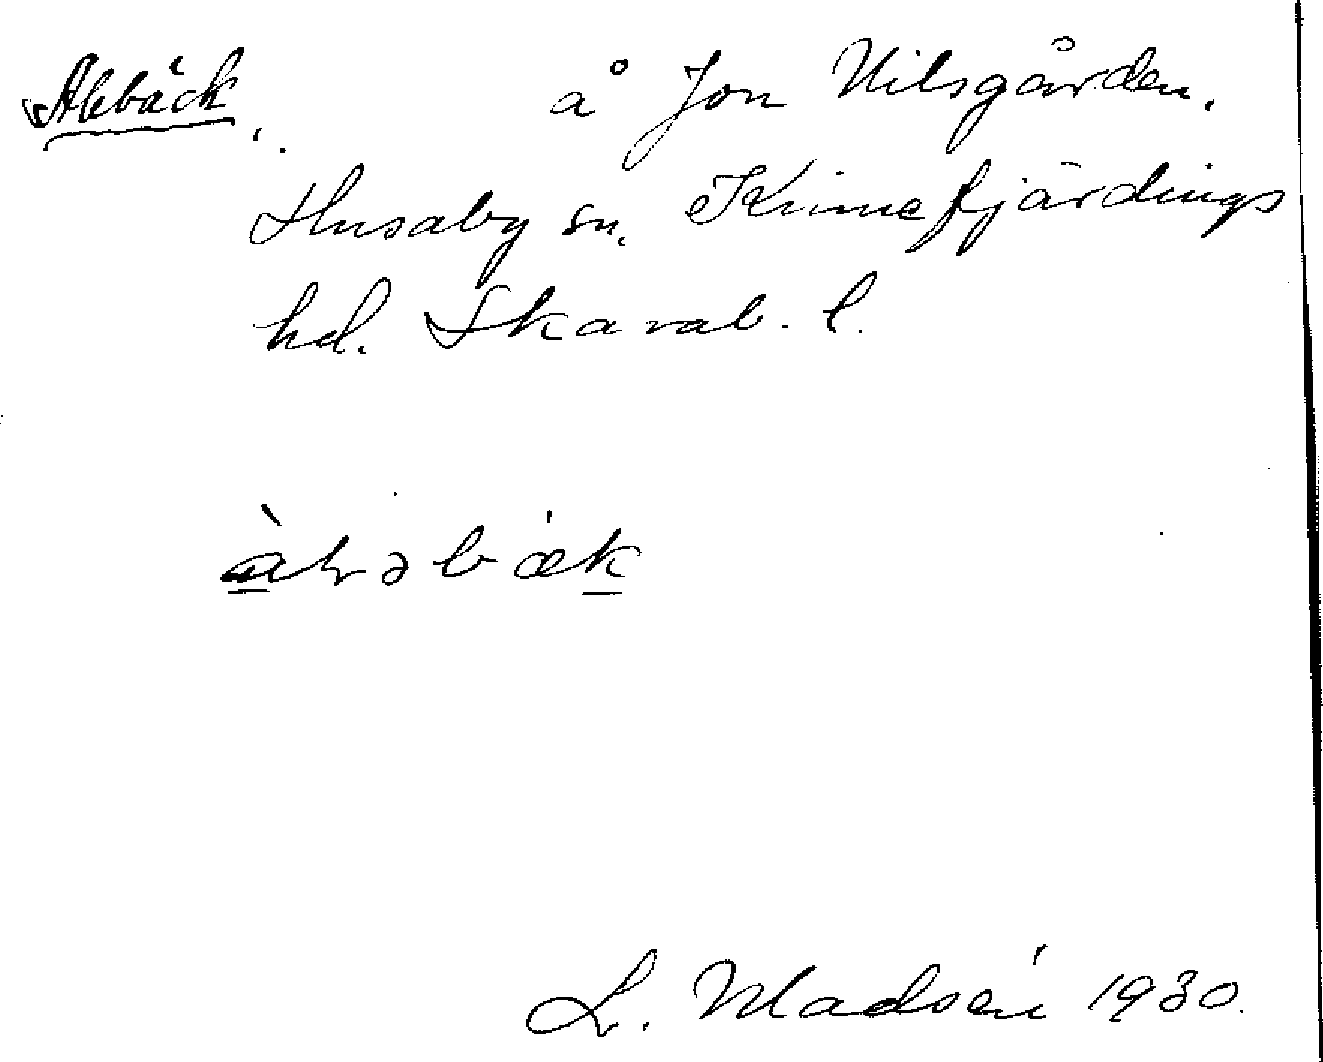 Albäck. å Jon Nilsgården.
Husaby sn. Kinnefjärdings
hd. Skarab. l.
L. Madsén 1930.